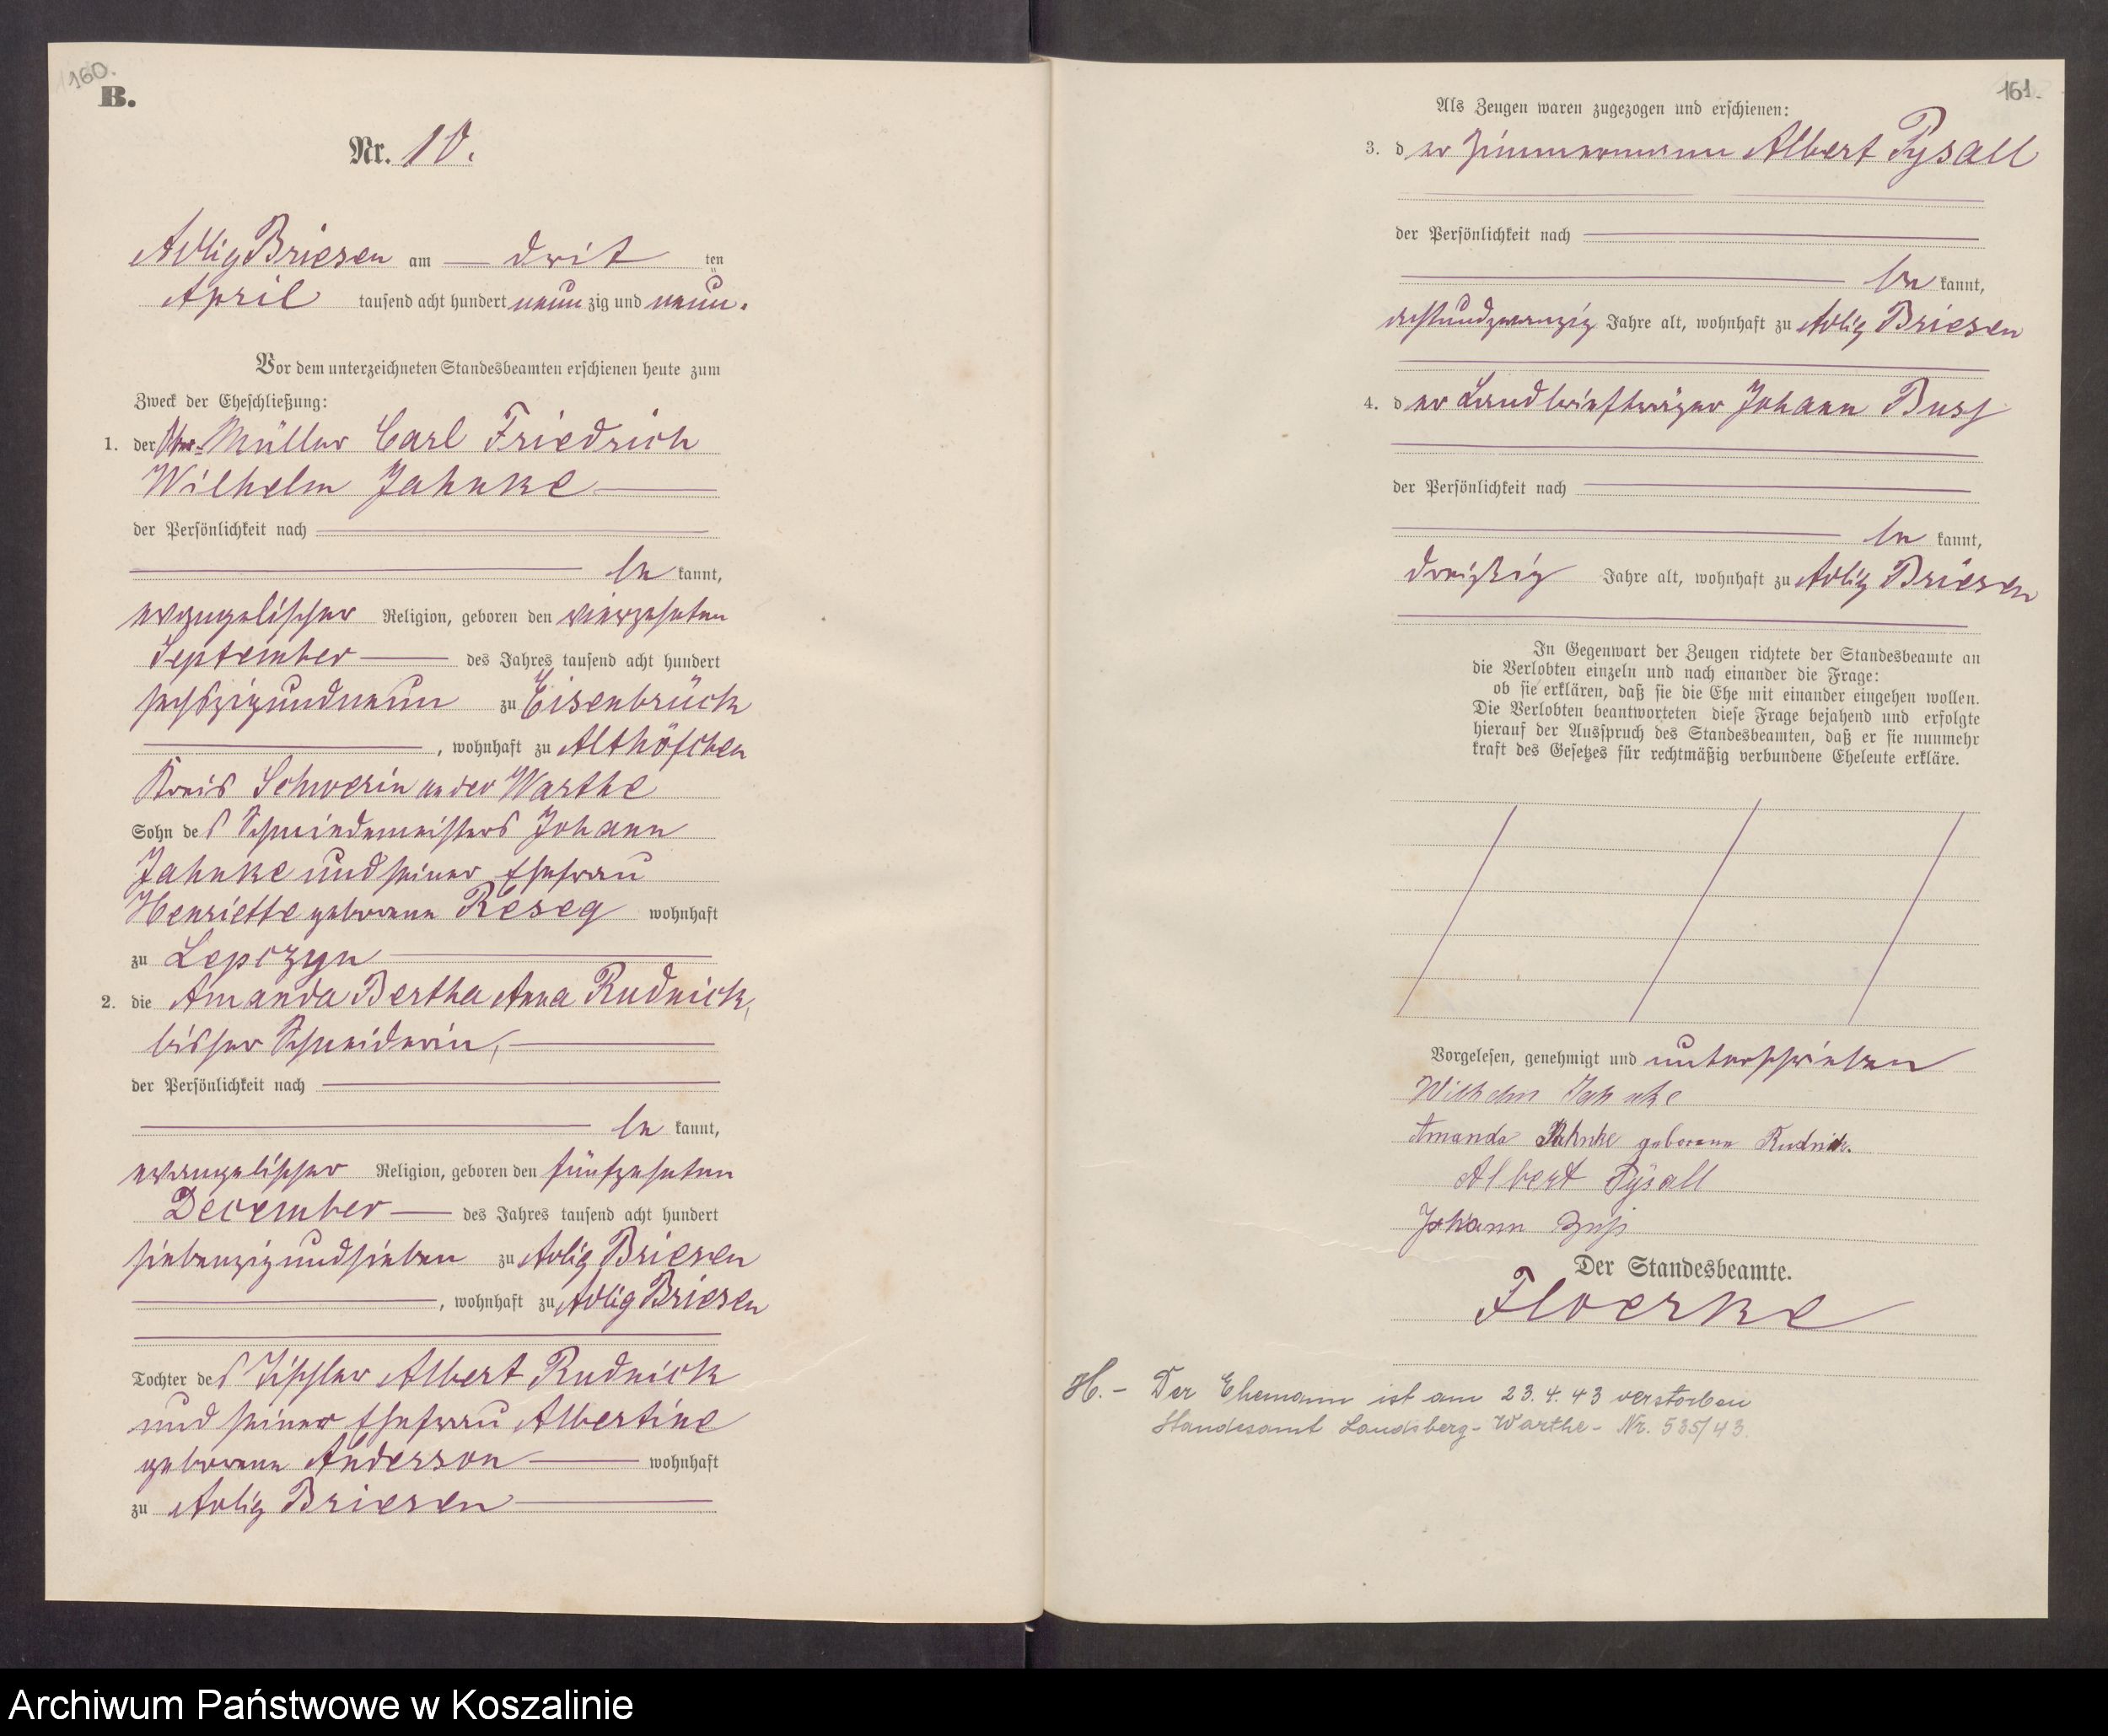 160.
B.
Nr. 10.
Adlig Briesen am drit ten
April tausend acht hundert neun zig und neun.
Vor dem unterzeichneten Standesbeamten erschienen heute zum
Zweck der Eheschließung:
1. der Ober-Müller Carl Friedrich
Wilhelm Jahnke
der Persönlichkeit nach
be kannt,
evangelischer Religion, geboren den vierzehnten
September des Jahres tausend acht hundert
sechszigundneun zu Eisenbrück
, wohnhaft zu Althöfchen
Kreis Schwerin an der Warthe
Sohn des Schmiedemeisters Johann
Jahnke und seiner Ehefrau
Henriette geborene Reseg wohnhaft
zu Lepczyn
2. die Amanda Bertha Anna Rudnick,
bisher Schneiderin,
der Persönlichkeit nach
be kannt,
evangelischer Religion, geboren den fünfzehnten
December des Jahres tausend acht hundert
siebenzigundsieben zu Adlig Briesen
, wohnhaft zu Adlig Briesen
Tochter des Tischler Albert Rudnick
und seiner Ehefrau Albertine
geborene Anderson wohnhaft
zu Adlig Briesen
161.
Als Zeugen waren zugezogen und erschienen:
3. der Zimmermann Albert Pysall
der Persönlichkeit nach
be kannt,
achtundzwanzig Jahre alt, wohnhaft zu Adlig Briesen
4. der Landbriefträger Johann Buss
der Persönlichkeit nach
be kannt,
dreißig Jahre alt, wohnhaft zu Adlig Briesen
In Gegenwart der Zeugen richtete der Standesbeamte an
die Verlobten einzeln und nach einander die Frage:
ob sie erklären, daß sie die Ehe mit einander eingehen wollen.
Die Verlobten beantworteten diese Frage bejahend und erfolgte
hierauf der Ausspruch des Standesbeamten, daß er sie nunmehr
kraft des Gesetzes für rechtmäßig verbundene Eheleute erkläre.
Vorgelesen, genehmigt und unterschrieben
Wilhelm Jahnke
Amanda Jahnke geborene Rudnick.
Albert Pysall
Johann Buss
Der Standesbeamte.
Floerke
H. - Der Ehemann ist am 23.4.43 verstorben
Standesamt Landsberg-Warthe- Nr. 535/43.
Archiwum Państwowe w Koszalinie